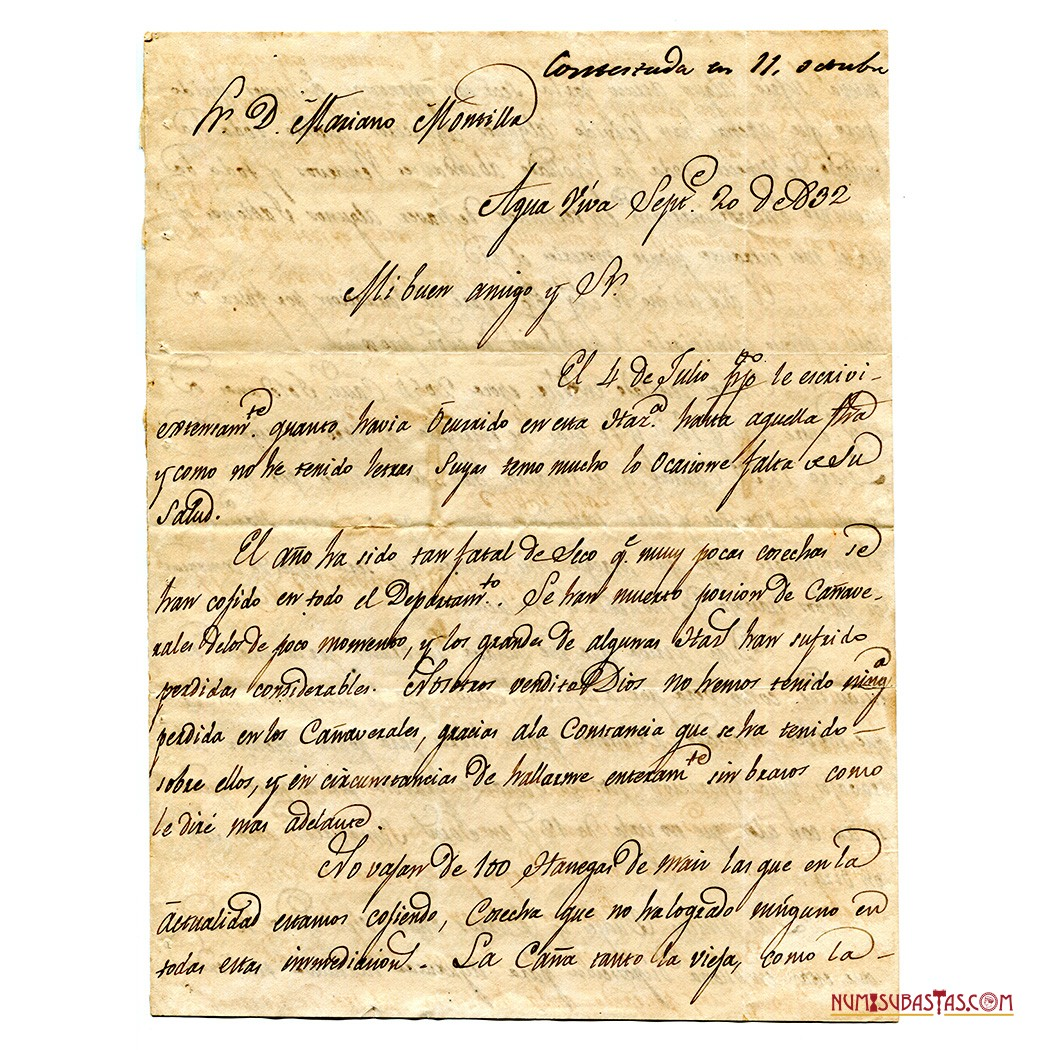 Contestada en 11, octubre
Sr D. Mariano Montilla
Agua Viva Septe. 20 de 832
Mi buen amigo y Sr.
El 4 de Julio ppo. le escrivi-
extensamte. quanto havia Ocurrido en esta Haza. hasta aquella fha
y como no he tenido letras Suyas temo mucho lo Ocasione falta de Su
Salud.
El año ha sido tan fatal de Seco qe. muy pocas cosechas se
han cojido en todo el Departamto.. Se han muerto porsion de Cañave-
rales delos de poco momento, y los grandes de algunas Hazs han sufrido
perdidas considerables. Nosotros vendito Dios no hemos tenido ninga
perdida en los Cañaverales, gracias ala Constancia que se ha tenido-
sobre ellos, y én circunstancias de hallarme enteramte sin brasos como
le diré mas adelante.
No vajan de 100 Hanegas de maiz las que en la
Actualidad estamos cojiendo, Cosecha que no ha logrado ninguno en
todas estas inmediacions.. La Caña tanto la vieja, como la-
NUMISUBASTAS.COM